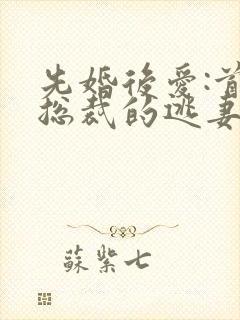 先婚後愛:首
總裁的逃妻
蘇紫七